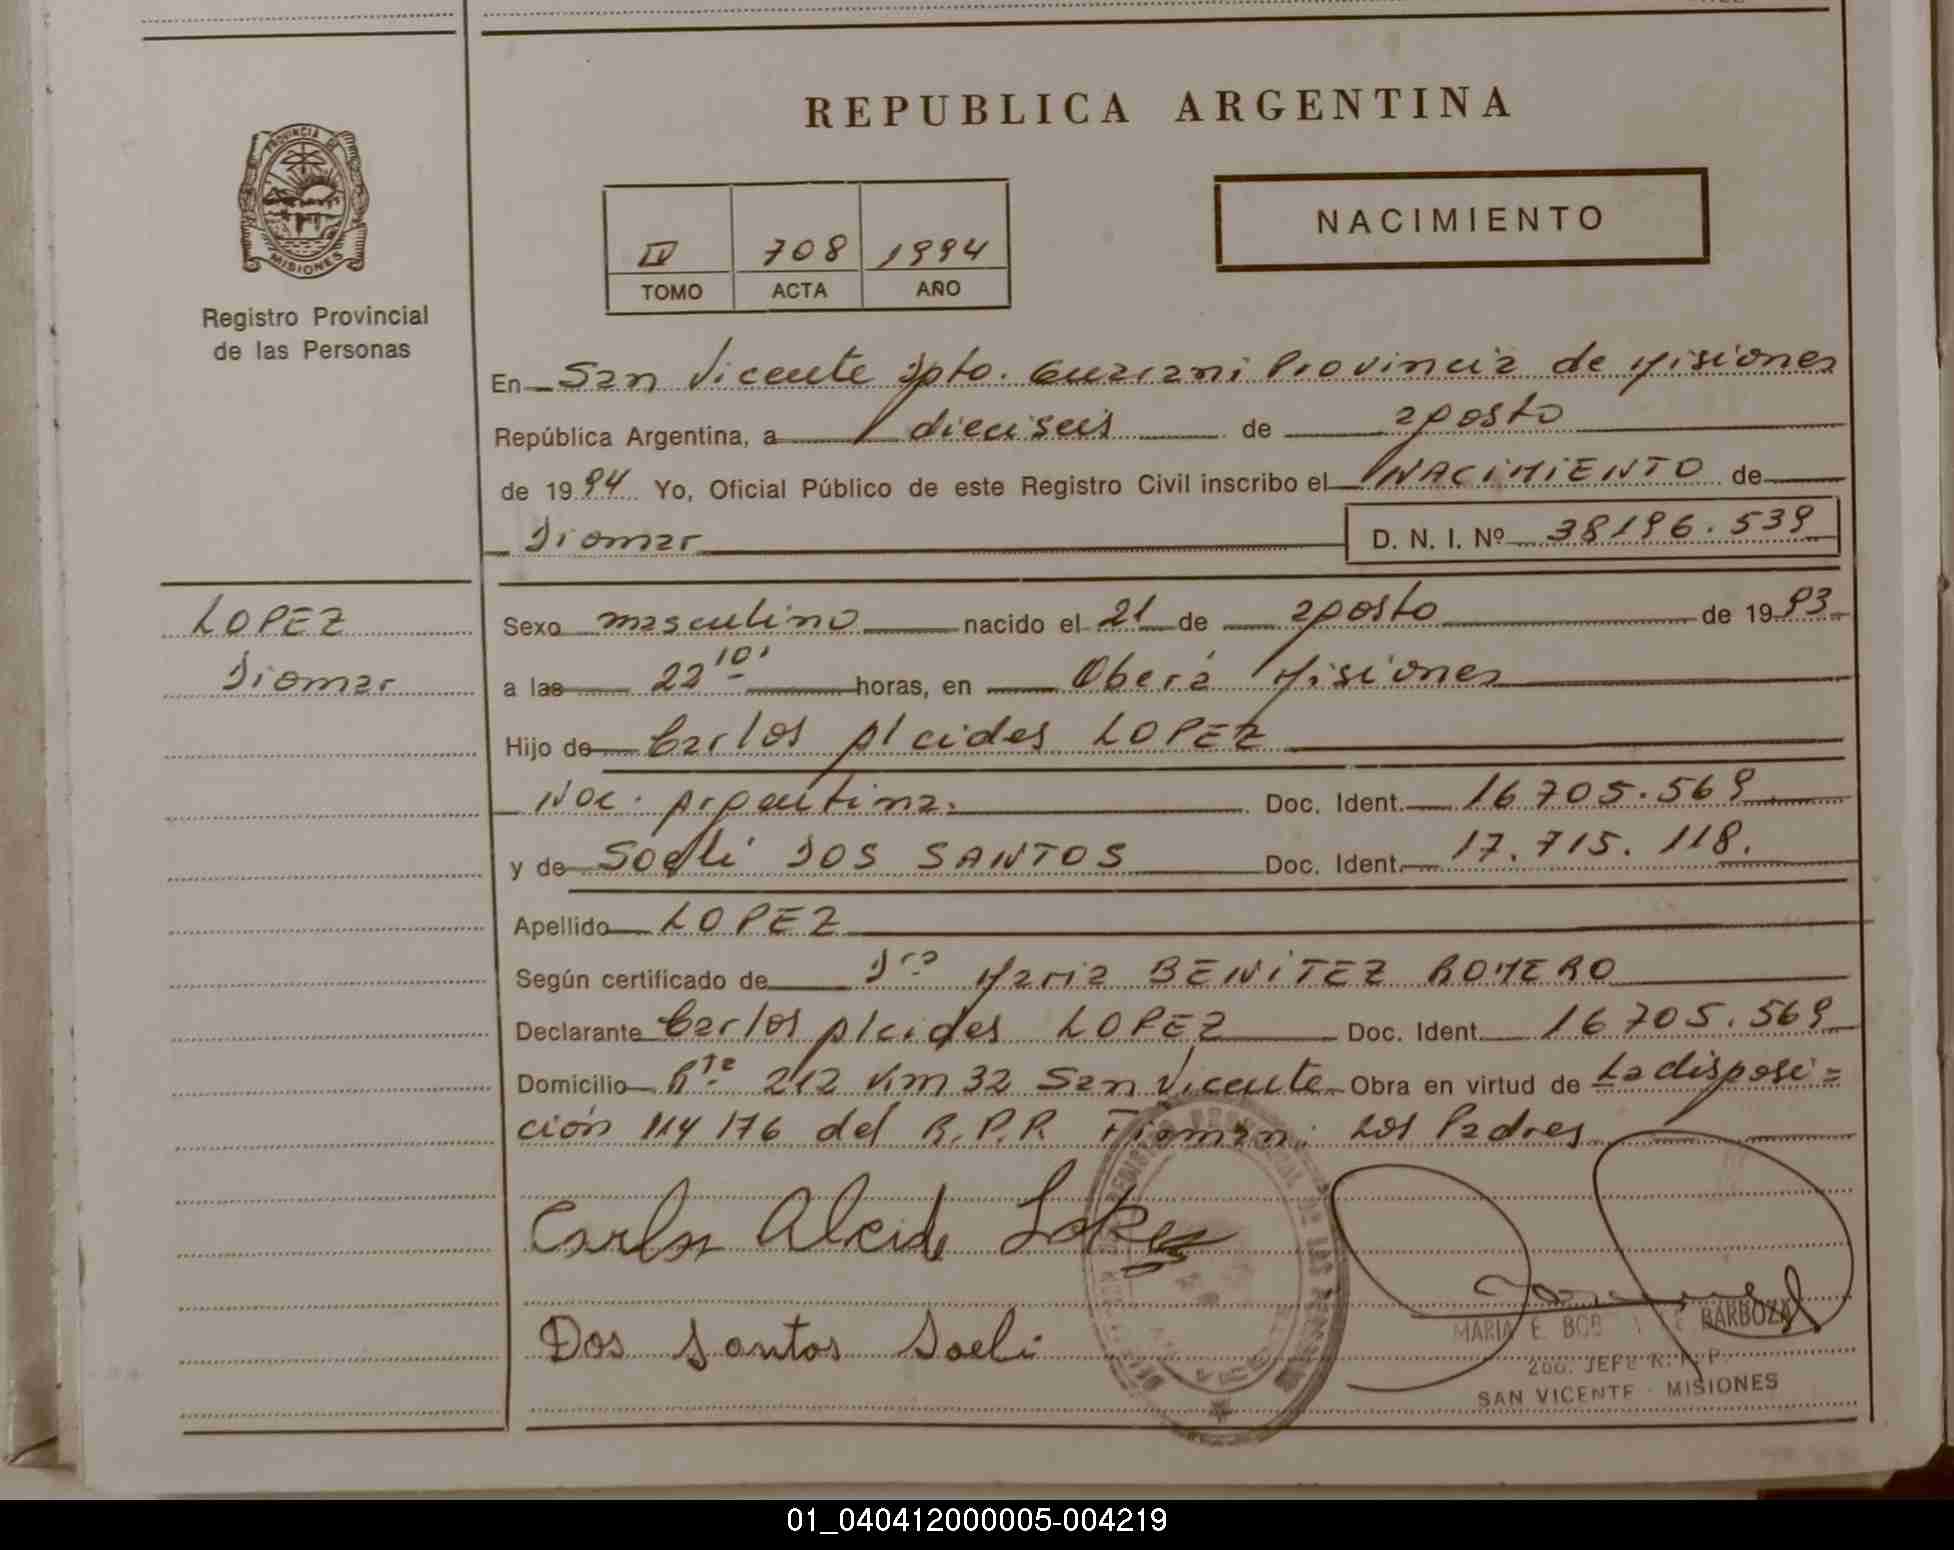 REPUBLICA ARGENTINA
PROVINCIA DE
MISIONES
Registro Provincial
de las Personas
NACIMIENTO
IV 708 1994
TOMO ACTA AÑO
En San Vicente Dpto. Guarani Provincia de Misiones
República Argentina, a dieciseis de agosto
de 1994 Yo, Oficial Público de este Registro Civil inscribo el NACIMIENTO de
Diomar D. N. I. Nº 38196.539
LOPEZ
Diomar
Sexo masculino nacido el 21 de agosto de 1993
a las 22 10' horas, en Oberá Misiones
Hijo de Carlos Alcides LOPEZ
Nac. Argentina. Doc. Ident. 16705.569
y de Soeli DOS SANTOS Doc. Ident. 17.715.118.
Apellido LOPEZ
Según certificado de Dra Maria BENITEZ ROMERO
Declarante Carlos Alcides LOPEZ Doc. Ident. 16705.569
Domicilio Rta 212 Km 32 San Vicente Obra en virtud de La disposi=
ción 114176 del R.P.P. Firman: Los Padres
Carlos Alcide Lopez
Dos Santos Soeli
MARIA E. BOB BARBOZA
2do. JEFE R. P. P.
SAN VICENTE - MISIONES
01_040412000005-004219